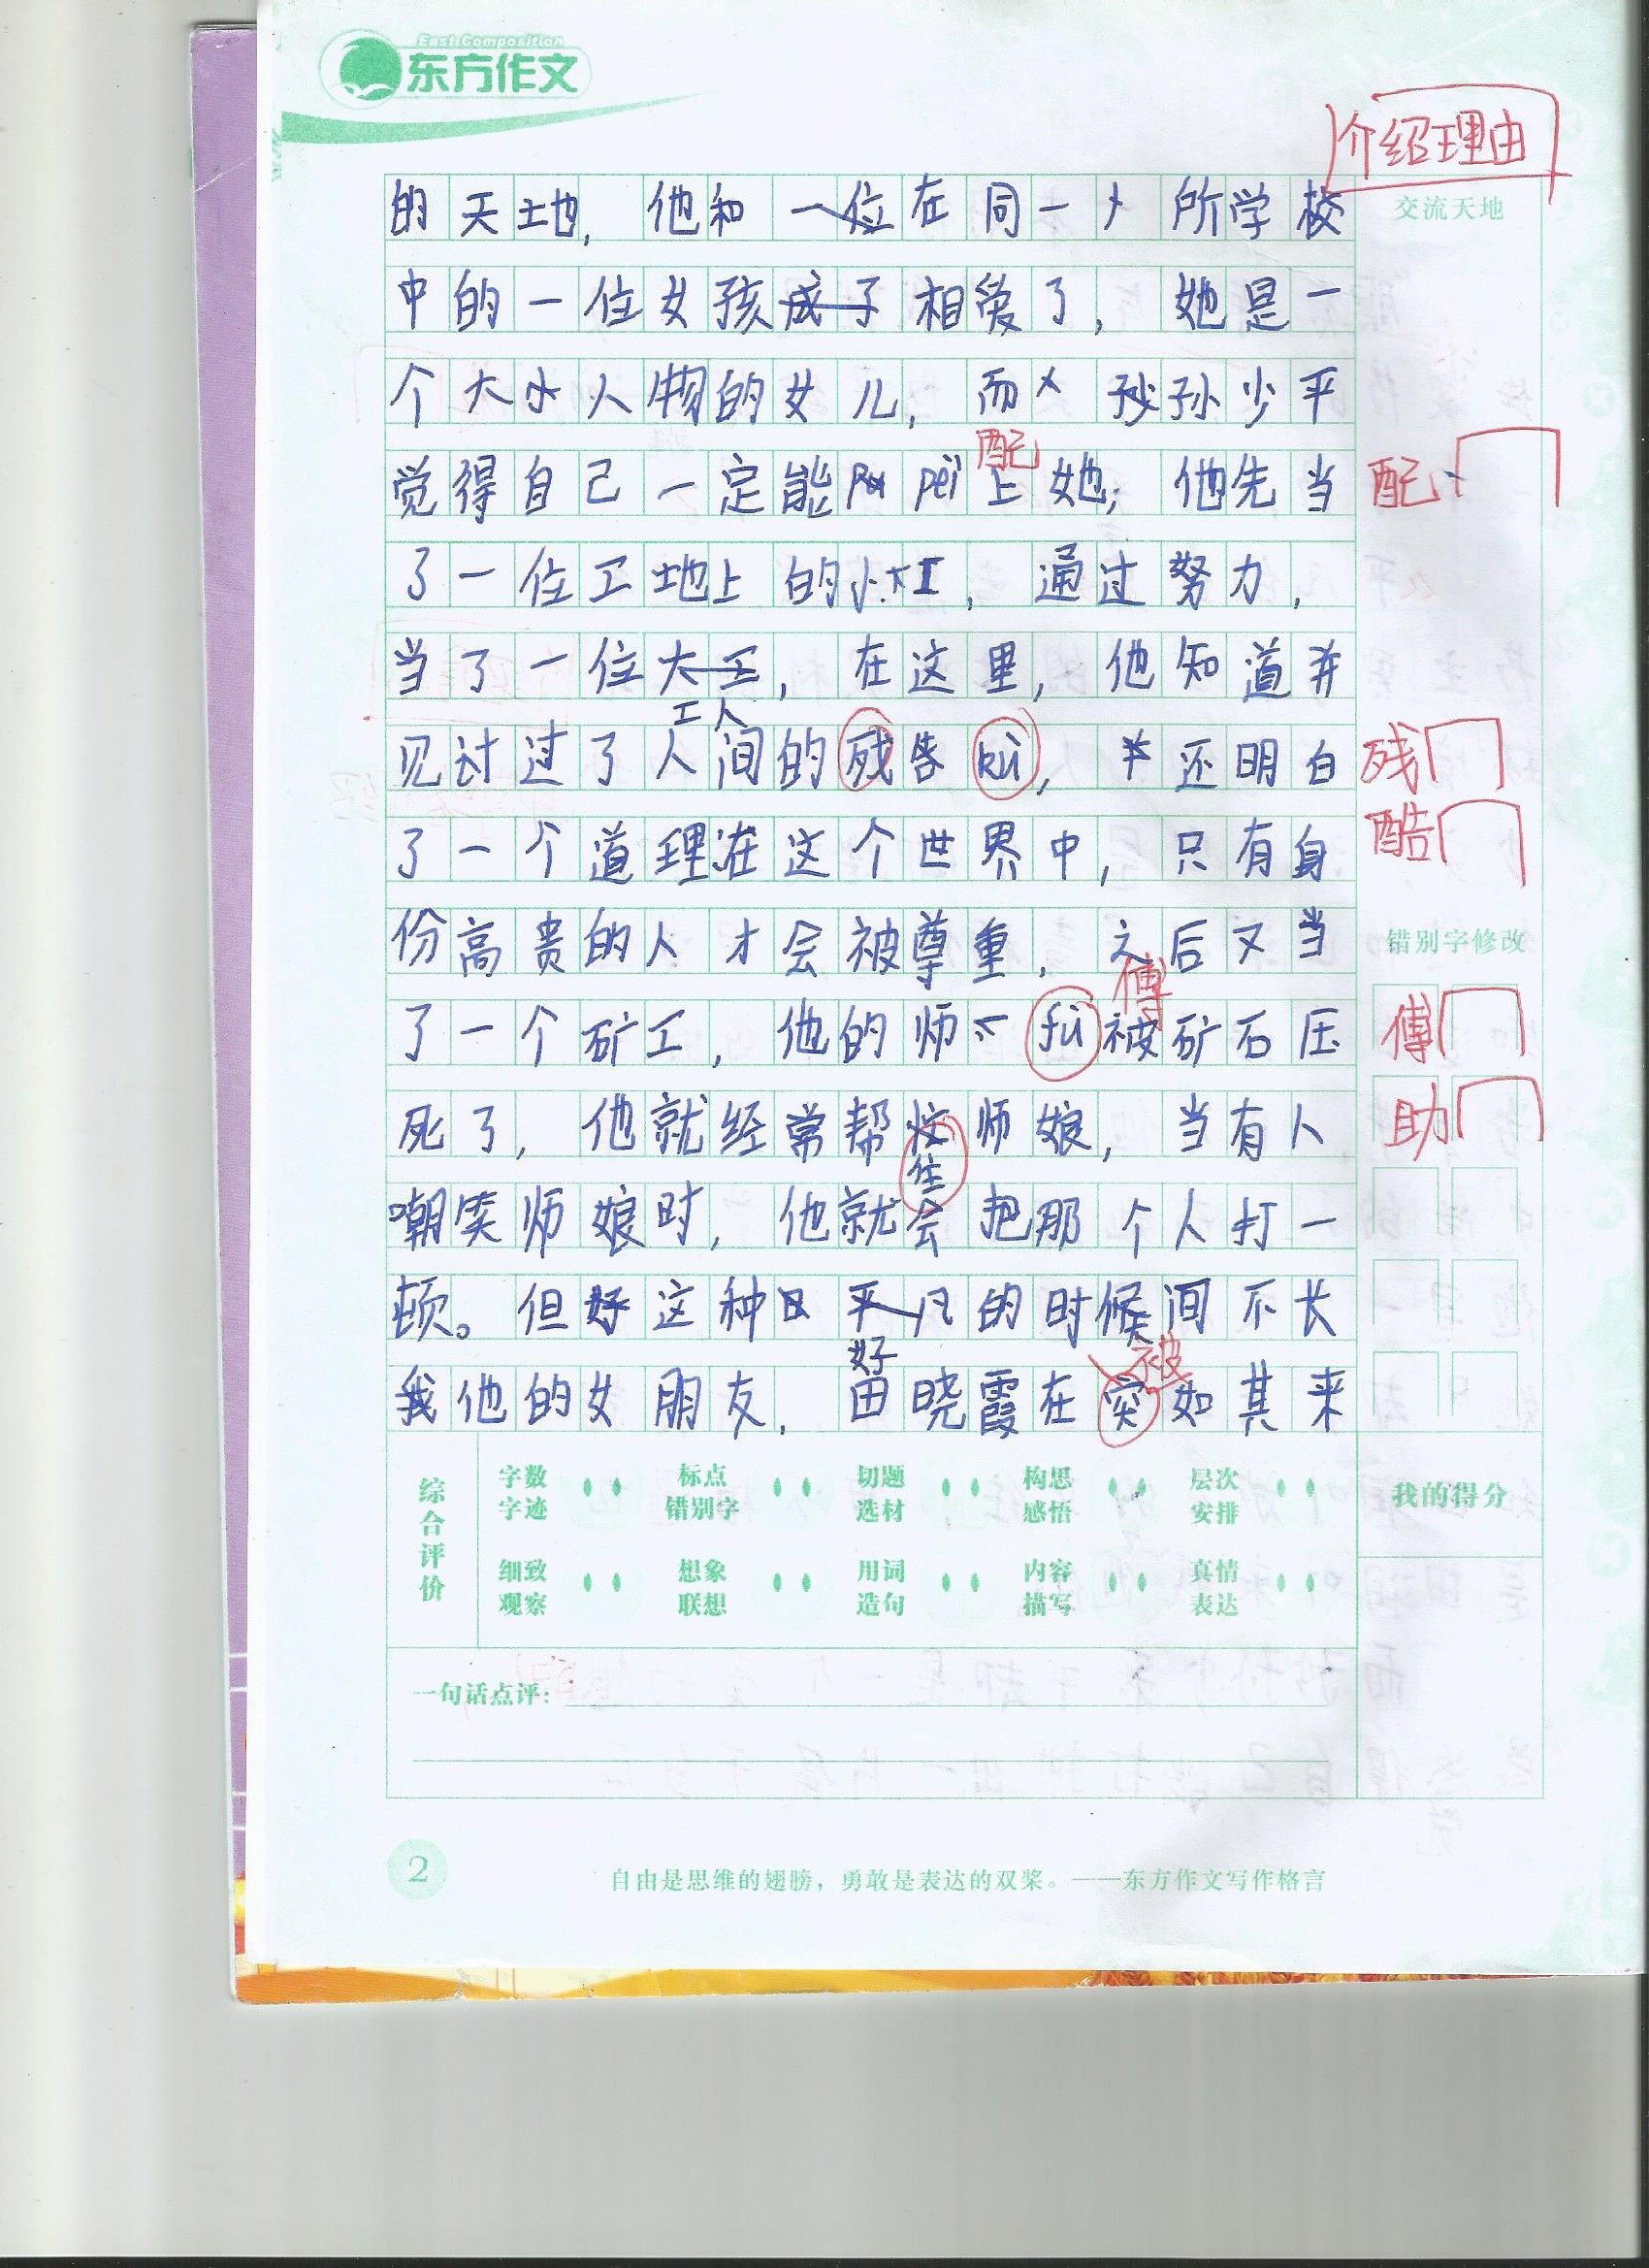 East Composition
东方作文
介绍理由
交流天地
的天地,他和一位在同一所学校
中的一位女孩成了相爱了,她是一
个大人物的女儿,而孙少平
觉得自己一定能pèi上她,他先当
配
配
了一位工地上的小工,通过努力,
当了一位大工,在这里,他知道并
见过了人间的残告kù,还明白
工人
残
酷
了一个道理在这个世界中,只有身
份高贵的人才会被尊重,之后又当
错别字修改
了一个矿工,他的师fù被矿石压
傅
傅
死了,他就经常帮师娘,当有人
助
嘲笑师娘时,他就会把那个人打一
顿。但好这种平凡的时候间不长
我他的女朋友,田晓霞在突如其来
好
被
综合评价
字数字迹 标点错别字 切题选材 构思感悟 层次安排
我的得分
细致观察 想象联想 用词造句 内容描写 真情表达
一句话点评:
2
自由是思维的翅膀,勇敢是表达的双桨。——东方作文写作格言